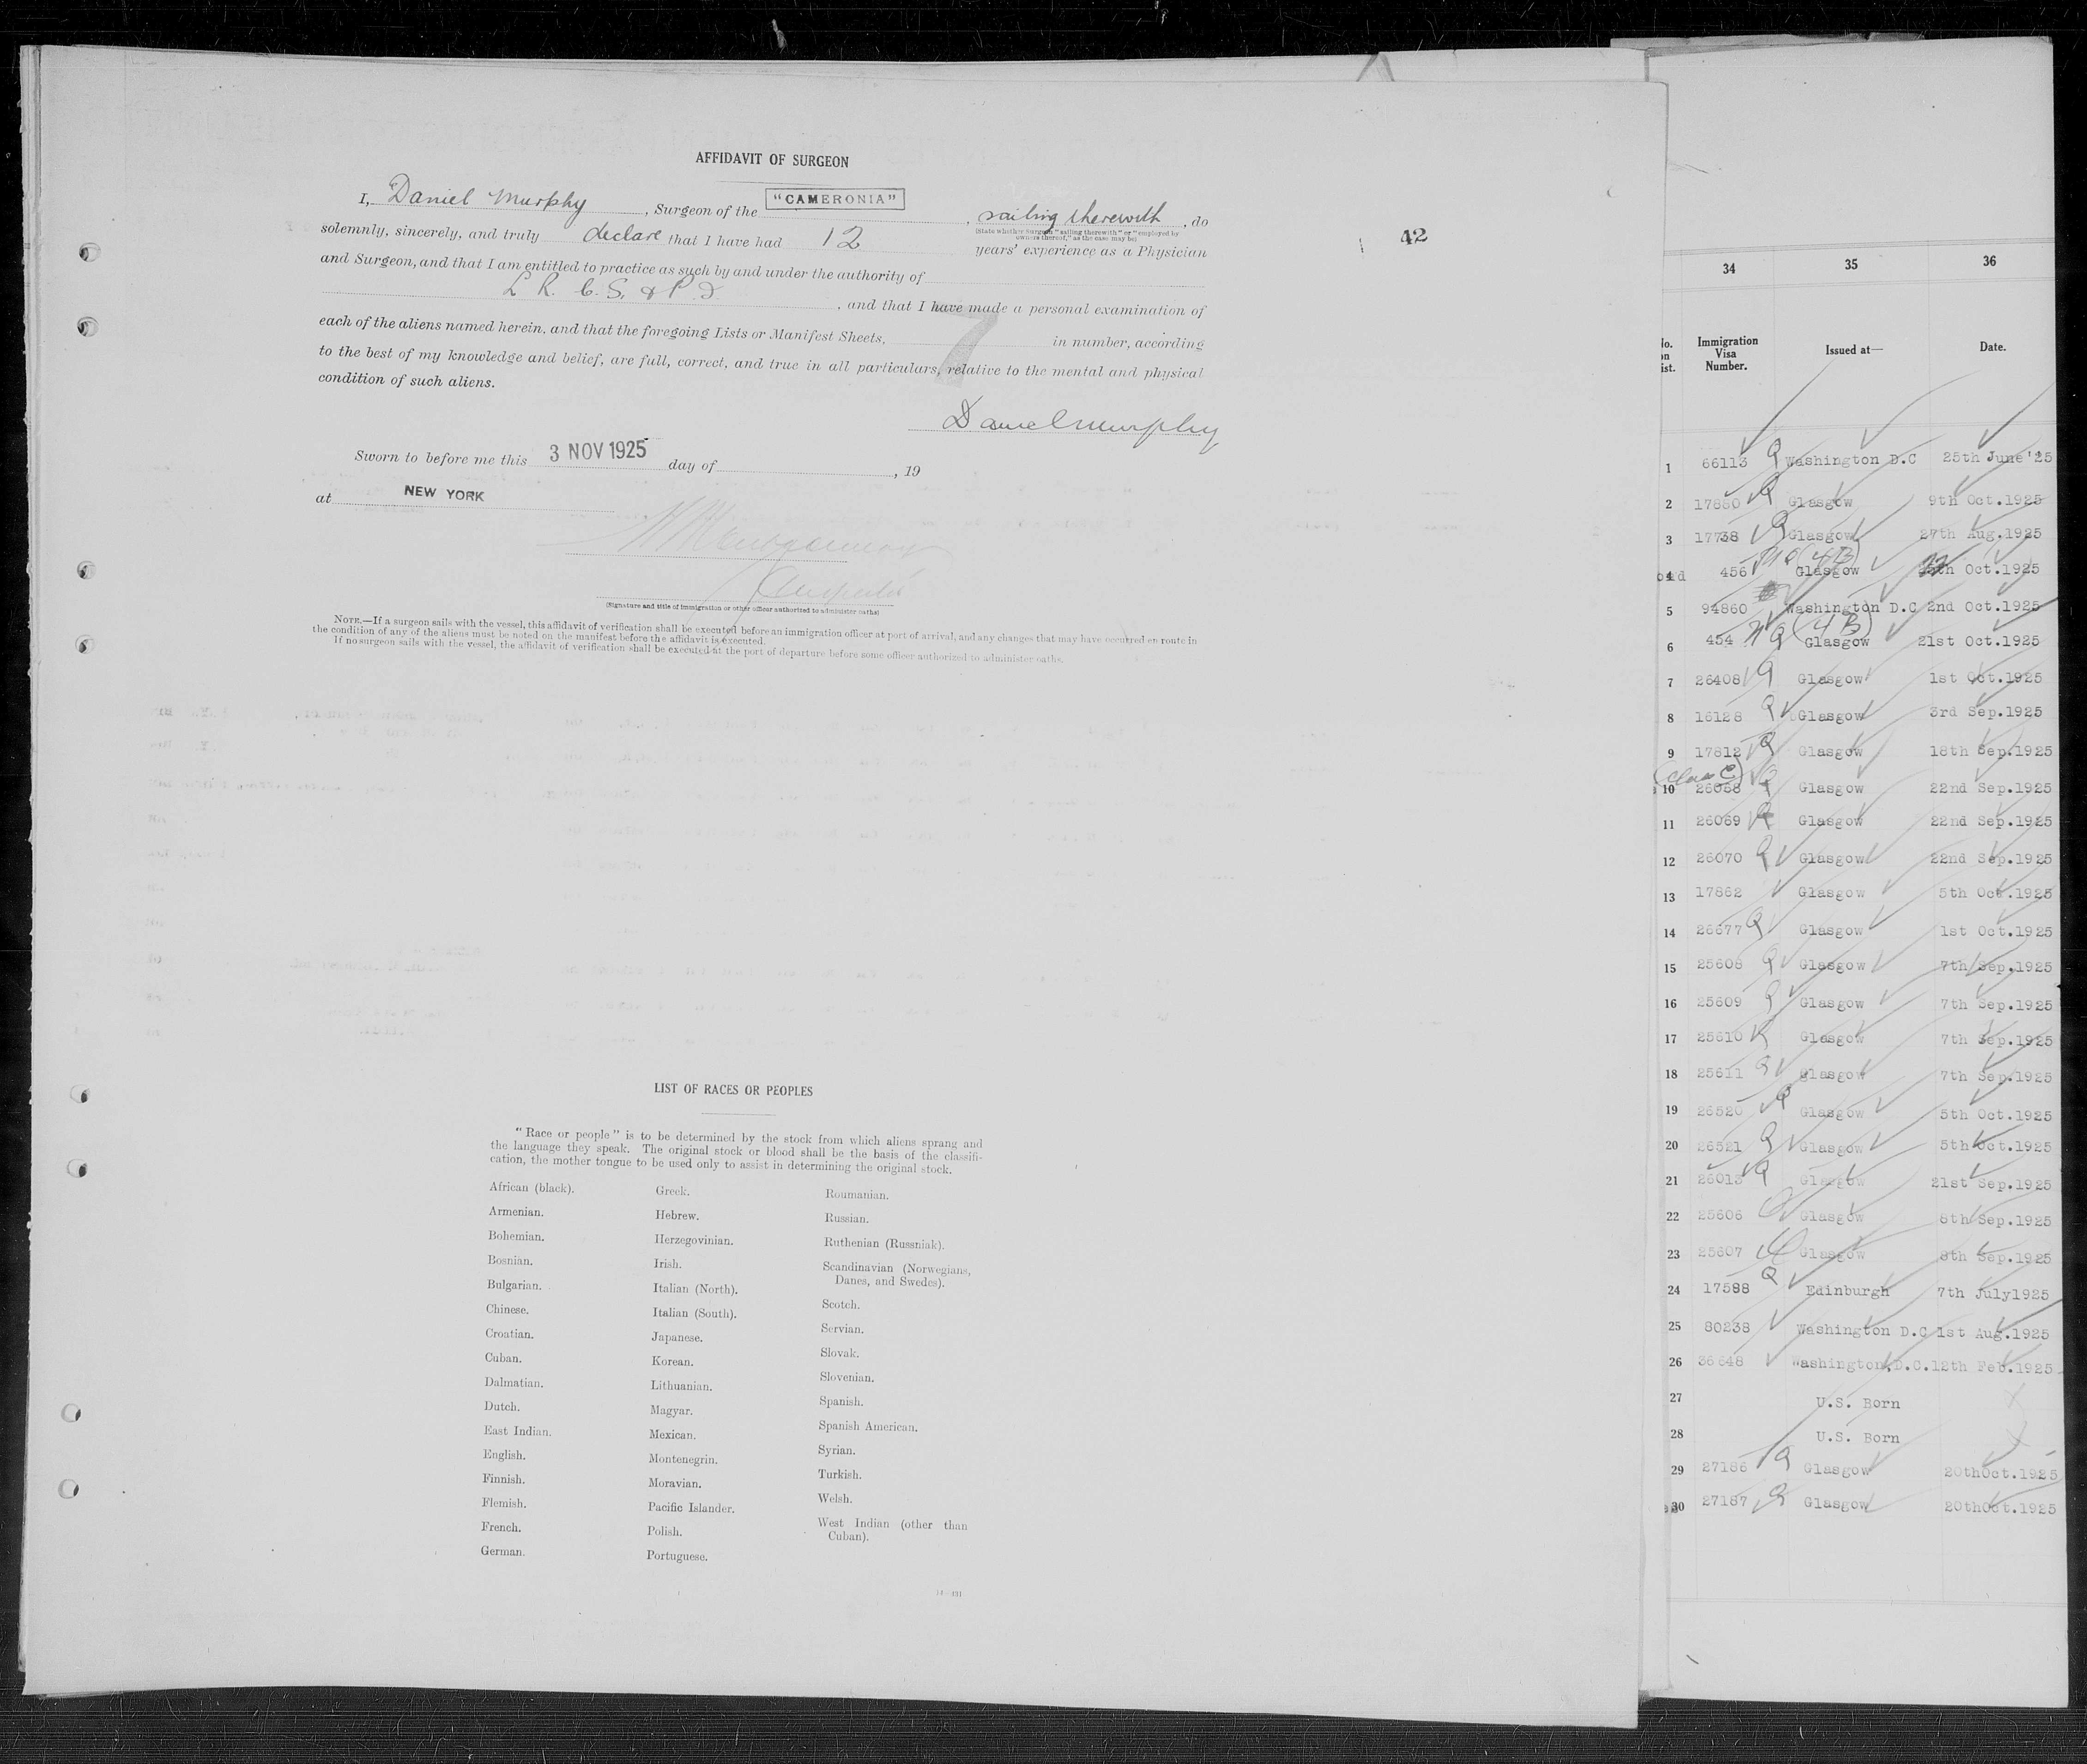 AFFIDAVIT OF SURGEON
I, Daniel Murphy, Surgeon of the "CAMERONIA", sailing therewith, do
(State whether Surgeon "sailing therewith" or "employed by
owners thereof," as the case may be)
solemnly, sincerely, and truly declare that I have had 12 years' experience as a Physician
and Surgeon, and that I am entitled to practice as such by and under the authority of
L R. C. S. & P. I, and that I have made a personal examination of
each of the aliens named herein, and that the foregoing Lists or Manifest Sheets, 7 in number, according
to the best of my knowledge and belief, are full, correct, and true in all particulars, relative to the mental and physical
condition of such aliens.
Daniel Murphy
Sworn to before me this 3 NOV 1925 day of , 19
at NEW YORK
(Signature and title of immigration or other officer authorized to administer oaths)
NOTE.—If a surgeon sails with the vessel, this affidavit of verification shall be executed before an immigration officer at port of arrival, and any changes that may have occurred en route in
the condition of any of the aliens must be noted on the manifest before the affidavit is executed.
If no surgeon sails with the vessel, the affidavit of verification shall be executed at the port of departure before some officer authorized to administer oaths.
42
LIST OF RACES OR PEOPLES
"Race or people" is to be determined by the stock from which aliens sprang and
the language they speak. The original stock or blood shall be the basis of the classifi-
cation, the mother tongue to be used only to assist in determining the original stock.
African (black).
Armenian.
Bohemian.
Bosnian.
Bulgarian.
Chinese.
Croatian.
Cuban.
Dalmatian.
Dutch.
East Indian.
English.
Finnish.
Flemish.
French.
German.
Greek.
Hebrew.
Herzegovinian.
Irish.
Italian (North).
Italian (South).
Japanese.
Korean.
Lithuanian.
Magyar.
Mexican.
Montenegrin.
Moravian.
Pacific Islander.
Polish.
Portuguese.
Roumanian.
Russian.
Ruthenian (Russniak).
Scandinavian (Norwegians,
Danes, and Swedes).
Scotch.
Servian.
Slovak.
Slovenian.
Spanish.
Spanish American.
Syrian.
Turkish.
Welsh.
West Indian (other than
Cuban).
34 35 36
Immigration
Visa
Number.
Issued at—
Date.
1 66113 Q Washington D.C 25th June'25
2 17880 Q Glasgow 9th Oct.1925
3 17738 Q Glasgow 27th Aug.1925
4 456 NQ (4B) Glasgow Oct.1925
5 94860 Washington D.C 2nd Oct.1925
6 454 NQ (4B) Glasgow 21st Oct.1925
7 26408 Q Glasgow 1st Oct.1925
8 16128 Q Glasgow 3rd Sep.1925
9 17812 Q Glasgow 18th Sep.1925
(Class C)
10 26058 Q Glasgow 22nd Sep.1925
11 26069 Glasgow 22nd Sep.1925
12 26070 Q Glasgow 22nd Sep.1925
13 17862 Glasgow 5th Oct.1925
14 26677 Q Glasgow 1st Oct.1925
15 25608 Q Glasgow 7th Sep.1925
16 25609 Q Glasgow 7th Sep.1925
17 25610 Glasgow 7th Sep.1925
18 25611 Q Glasgow 7th Sep.1925
19 26520 Q Glasgow 5th Oct.1925
20 26521 Q Glasgow 5th Oct.1925
21 26013 Q Glasgow 21st Sep.1925
22 25606 Q Glasgow 8th Sep.1925
23 25607 Q Glasgow 8th Sep.1925
24 17588 Q Edinburgh 7th July1925
25 80238 Washington D.C 1st Aug.1925
26 36648 Washington,D.C.12th Feb.1925
27 U.S. Born
28 U.S. Born
29 27186 Q Glasgow 20thOct.1925
30 27187 Q Glasgow 20thOct.1925